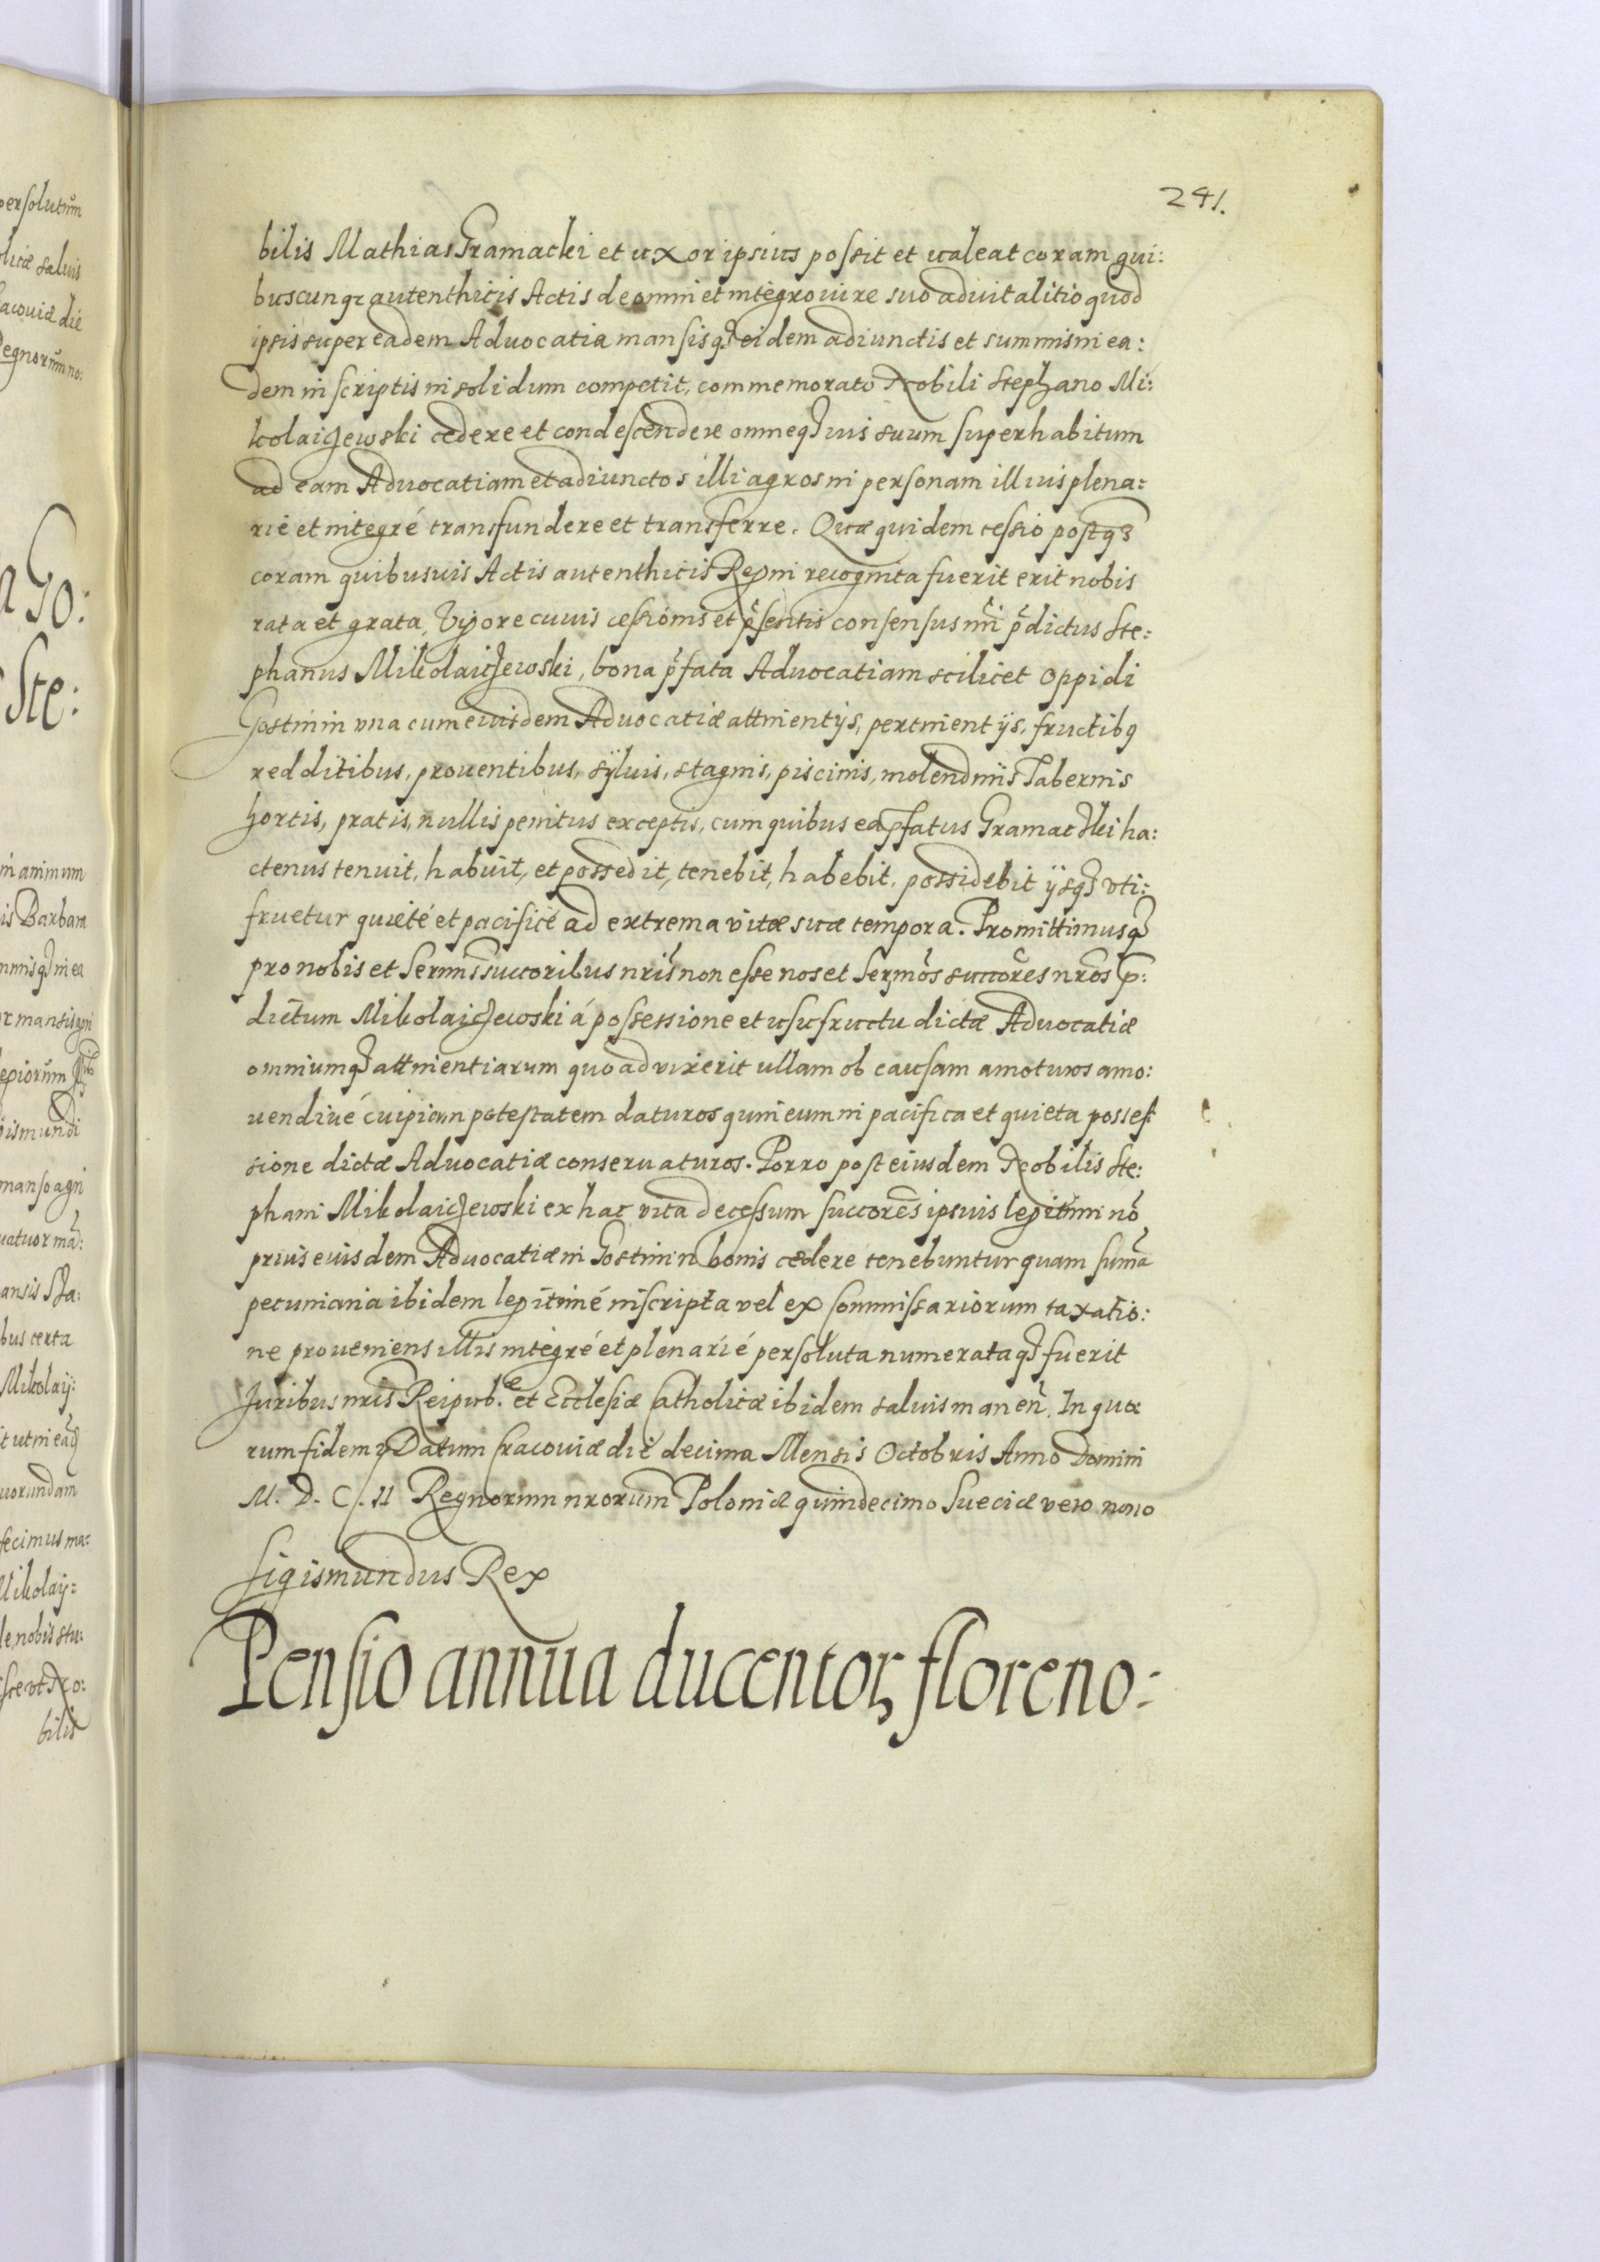 241.
bilis Mathias Gramacki et uxor ipsius possit et ualeat coram qui:
buscunqz autenthicis Actis de omni et integro iure suo aduitalitio quod
ipsis super eadem Aduocatia mansisq3 eidem adiunctis et summis in ea:
dem inscriptis in solidum competit, commemorato Nobili Stephano Mi:
kolaiczewski cedere et condescendere omneq3 ius suum superhabitum
ad eam Aduocatiam et adiunctos illi agros in personam illius plena:
rie et integré transfundere et transferre. Quæ quidem cessio postq3
coram quibusuis Actis autenthicis Regni recognita fuerit erit nobis
rata et grata, Vigore cuius cessionis et p̃sentis consensus nr̃i p̃dictus Ste:
phanus Mikolaiczewski, bona p̃fata Aduocatiam scilicet oppidi
Gostinin vna cum eiusdem Aduocatiæ attinentijs, pertinentijs, fructib9
redditibus, prouentibus, syluis, stagnis, piscinis, molendinis Tabernis
hortis, pratis, nullis penitus exceptis, cum quibus ea p̃fatus Gramacki ha:
ctenus tenuit, habuit, et possedit, tenebit, habebit, possidebit ijsq3 vti:
fruetur quieté et pacificé ad extrema vitæ suæ tempora. Promittimusq3
pro nobis et Sermis successoribus nris̃ non esse nos et Sermõs succõres nr̃os p̃:
dictum Mikolaiczewski á possessione et usufructu dictæ Aduocatiæ
omniumq3 attinentiarum quoad vixerit ullam ob causam amoturos amo:
uendiué cuipiam potestatem daturos quin eum in pacifica et quieta posses
sione dictæ Aduocatiæ conseruaturos. Porro post eiusdem Nobilis Ste:
phani Mikolaiczewski ex hac vita decessum succorẽs ipsius legitimi nõ
prius eiusdem Aduocatiæ in Gostinin bonis cædere tenebuntur quam sum̃a
pecuniaria ibidem legitimé inscripta vel ex Commissariorum taxatio:
ne proueniens illis integré et plenarié persoluta numerataq3 fuerit
Juribus nris̃ Reipub.æ et Ecclesiæ Catholicæ ibidem saluis maneñ. In quo
rum fidem Datum Cracouiæ die decima Mensis Octobris Anno Domini
M. D. C. II Regnorum nrorum̃ Poloniæ quindecimo Sueciæ vero nono
Sigismundus Rex
Pensio annua ducentorꝫ floreno: